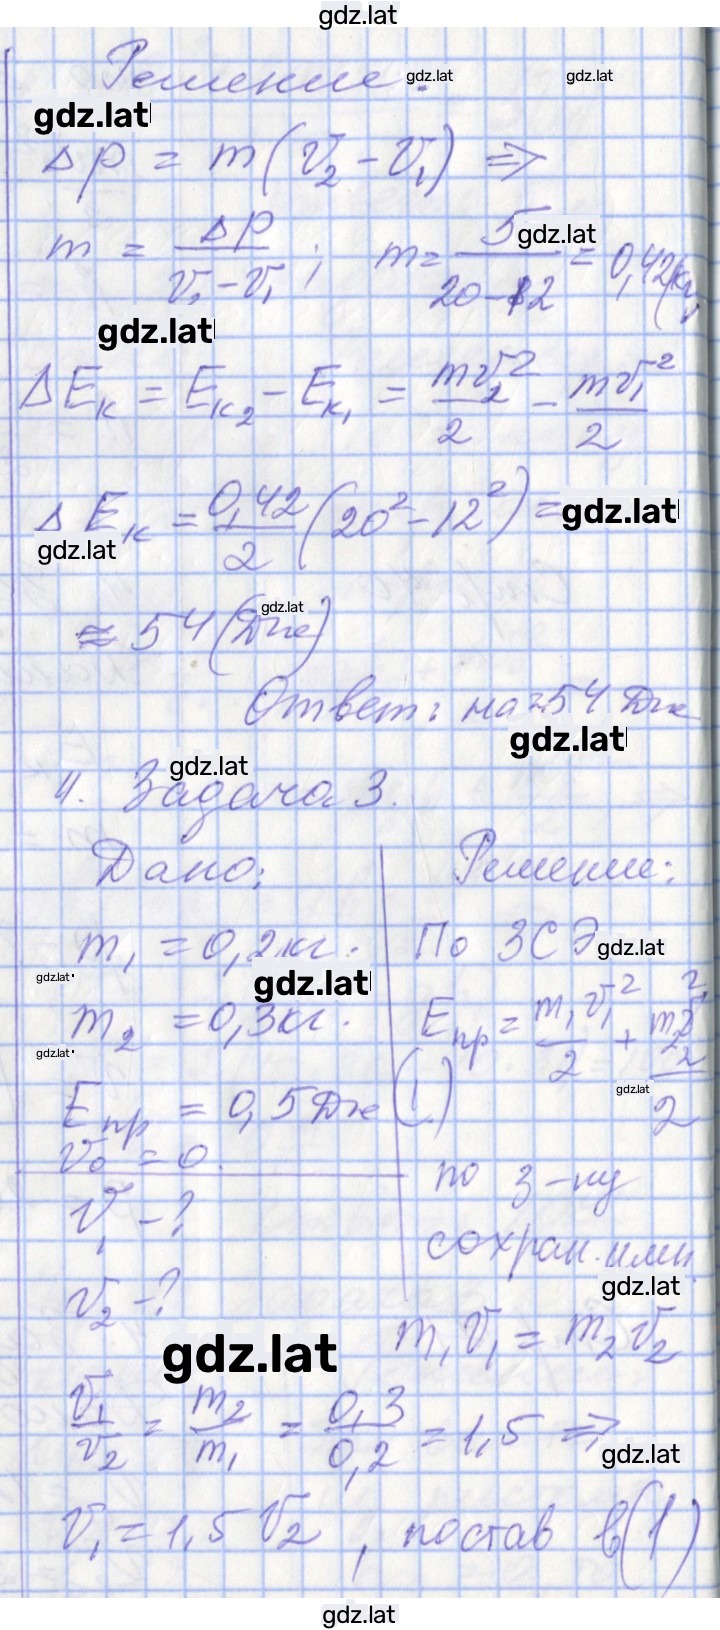 gdz.lat
Решение.
gdz.lat gdz.lat
gdz.lat
Δp = m(v₂ - v₁) ⇒
m = Δp / (v₂ - v₁) ; m = 5 / (20-12) = 0,42(кг)
gdz.lat
gdz.lat
ΔEк = Eк₂ - Eк₁ = mv₂²/2 - mv₁²/2
ΔEк = 0,42/2 (20² - 12²) =
gdz.lat
gdz.lat
gdz.lat
≈ 54 (Дж)
Ответ: на ≈54 Дж
gdz.lat
gdz.lat
4. Задача 3.
Дано:
m₁ = 0,2кг.
gdz.lat
gdz.lat
m₂ = 0,3кг.
gdz.lat
Eпр = 0,5Дж
v₀ = 0
v₁ - ?
v₂ - ?
Решение:
По ЗСЭ
gdz.lat
Eпр = m₁v₁²/2 + m₂v₂²/2
gdz.lat
(1)
по з-ну
сохран. имп.
gdz.lat
gdz.lat
m₁v₁ = m₂v₂
v₁/v₂ = m₂/m₁ = 0,3/0,2 = 1,5 ⇒
gdz.lat
v₁ = 1,5 v₂, постав в(1)
gdz.lat